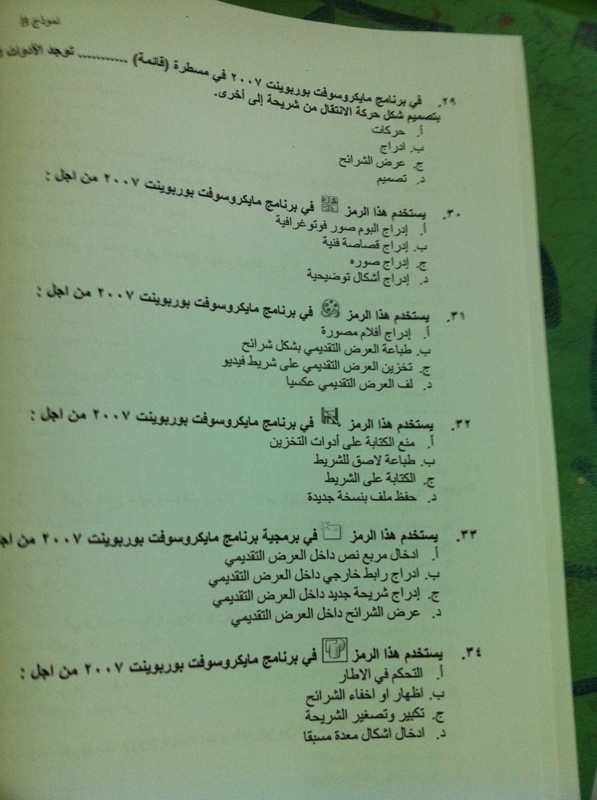 نموذج B
٢٩. في برنامج مايكروسوفت بوربوينت ٢٠٠٧ في مسطرة (قائمة) ........... توجد الأدوات
بتصميم شكل حركة الانتقال من شريحة إلى أخرى.
أ. حركات
ب. ادراج
ج. عرض الشرائح
د. تصميم
٣٠. يستخدم هذا الرمز في برنامج مايكروسوفت بوربوينت ٢٠٠٧ من اجل :
أ. إدراج البوم صور فوتوغرافية
ب. إدراج قصاصة فنية
ج. إدراج صوره
د. إدراج أشكال توضيحية
٣١. يستخدم هذا الرمز في برنامج مايكروسوفت بوربوينت ٢٠٠٧ من اجل :
أ. إدراج أفلام مصورة
ب. طباعة العرض التقديمي بشكل شرائح
ج. تخزين العرض التقديمي على شريط فيديو
د. لف العرض التقديمي عكسيا
٣٢. يستخدم هذا الرمز في برنامج مايكروسوفت بوربوينت ٢٠٠٧ من اجل :
أ. منع الكتابة على أدوات التخزين
ب. طباعة لاصق للشريط
ج. الكتابة على الشريط
د. حفظ ملف بنسخة جديدة
٣٣. يستخدم هذا الرمز في برمجية برنامج مايكروسوفت بوربوينت ٢٠٠٧ من اج
أ. ادخال مربع نص داخل العرض التقديمي
ب. ادراج رابط خارجي داخل العرض التقديمي
ج. إدراج شريحة جديد داخل العرض التقديمي
د. عرض الشرائح داخل العرض التقديمي
٣٤. يستخدم هذا الرمز في برنامج مايكروسوفت بوربوينت ٢٠٠٧ من اجل :
أ. التحكم في الاطار
ب. اظهار او اخفاء الشرائح
ج. تكبير وتصغير الشريحة
د. ادخال اشكال معدة مسبقا